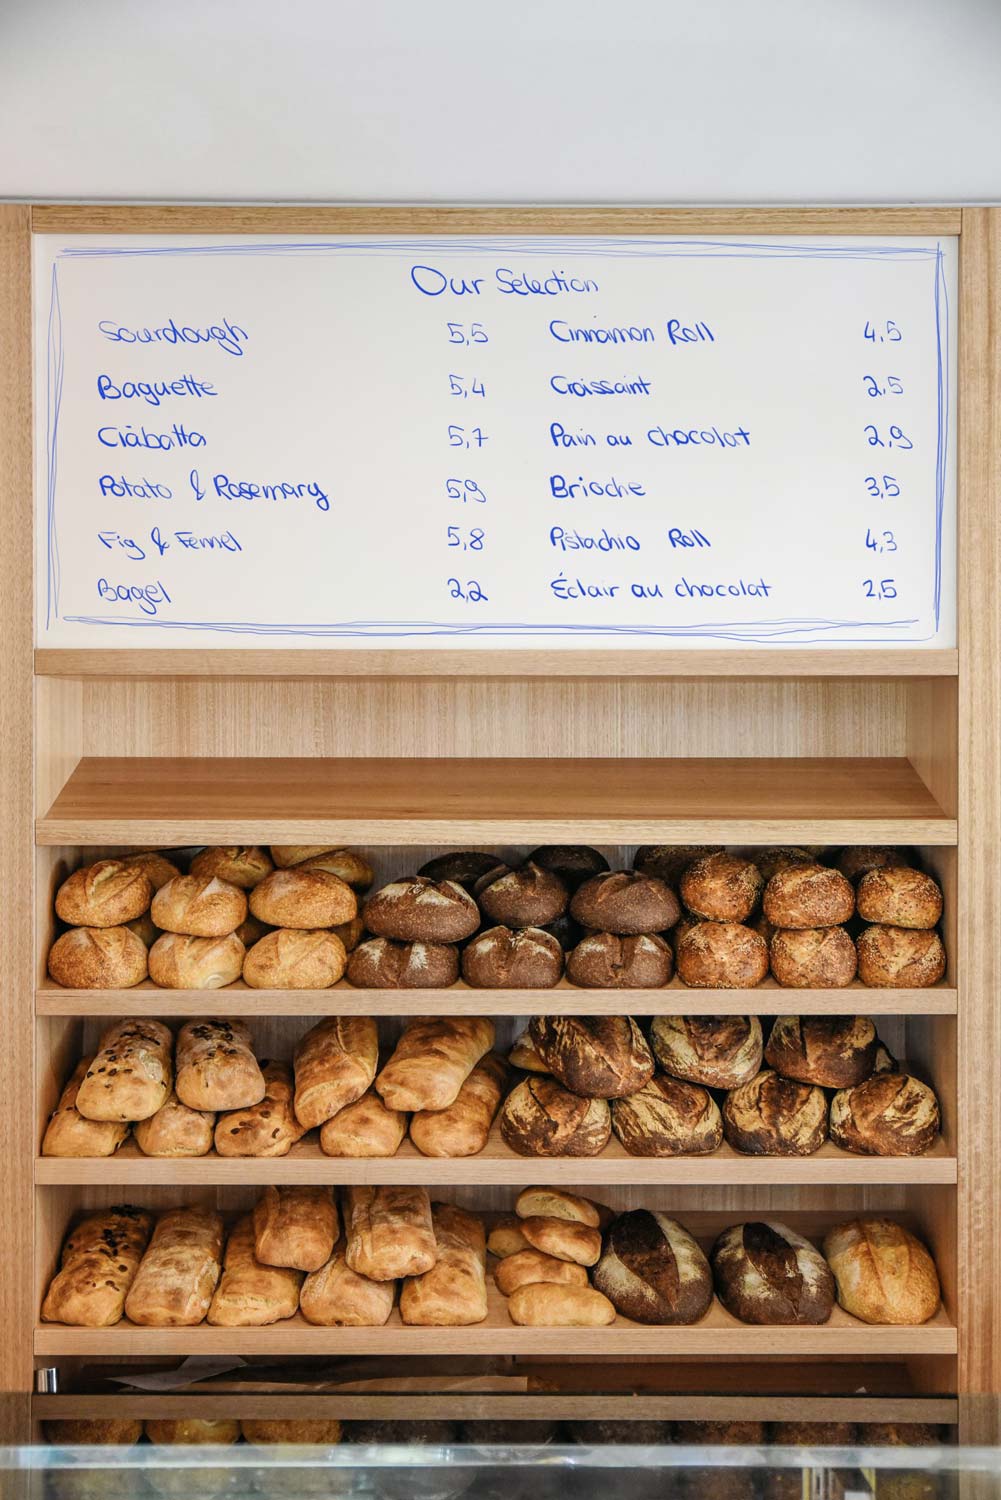 Our Selection
Sourdough 5,5
Baguette 5,4
Ciabatta 5,7
Potato & Rosemary 5,9
Fig & Fennel 5,8
Bagel 2,2
Cinnamon Roll 4,5
Croissaint 2,5
Pain au chocolat 2,9
Brioche 3,5
Pistachio Roll 4,3
Éclair au chocolat 2,5